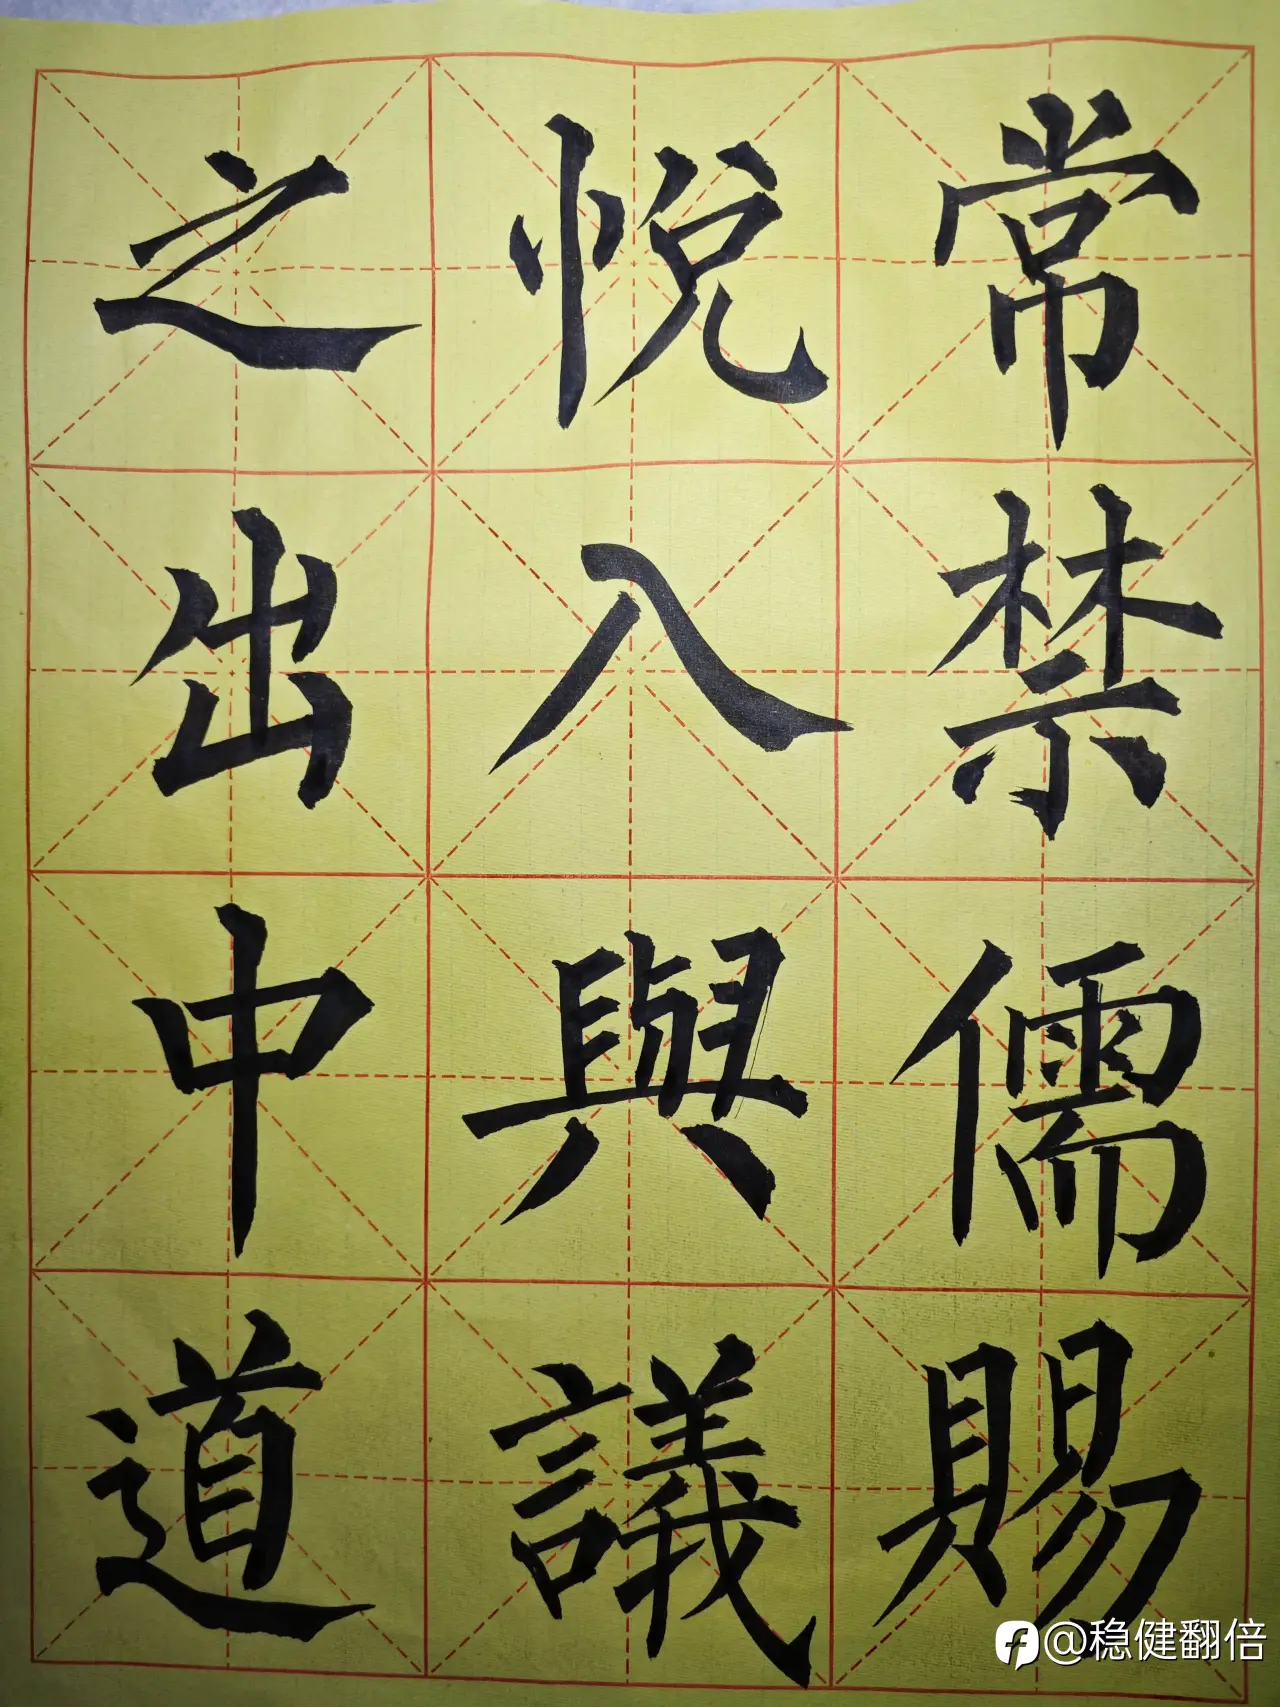 常禁儒賜
悅入與議
之出中道
@稳健翻倍